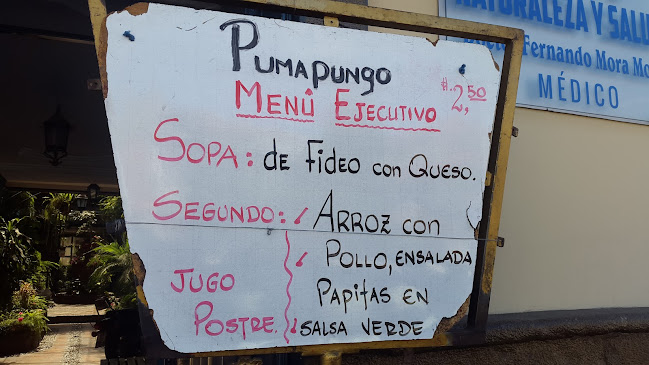 PUMAPUNGO
MENÚ EJECUTIVO $2,50
SOPA: de FIDEO con QUESO.
SEGUNDO: ARROZ CON
POLLO, ENSALADA
PAPITAS EN
SALSA VERDE
JUGO
POSTRE.
NATURALEZA Y SALU
Fernando Mora Mo
MÉDICO